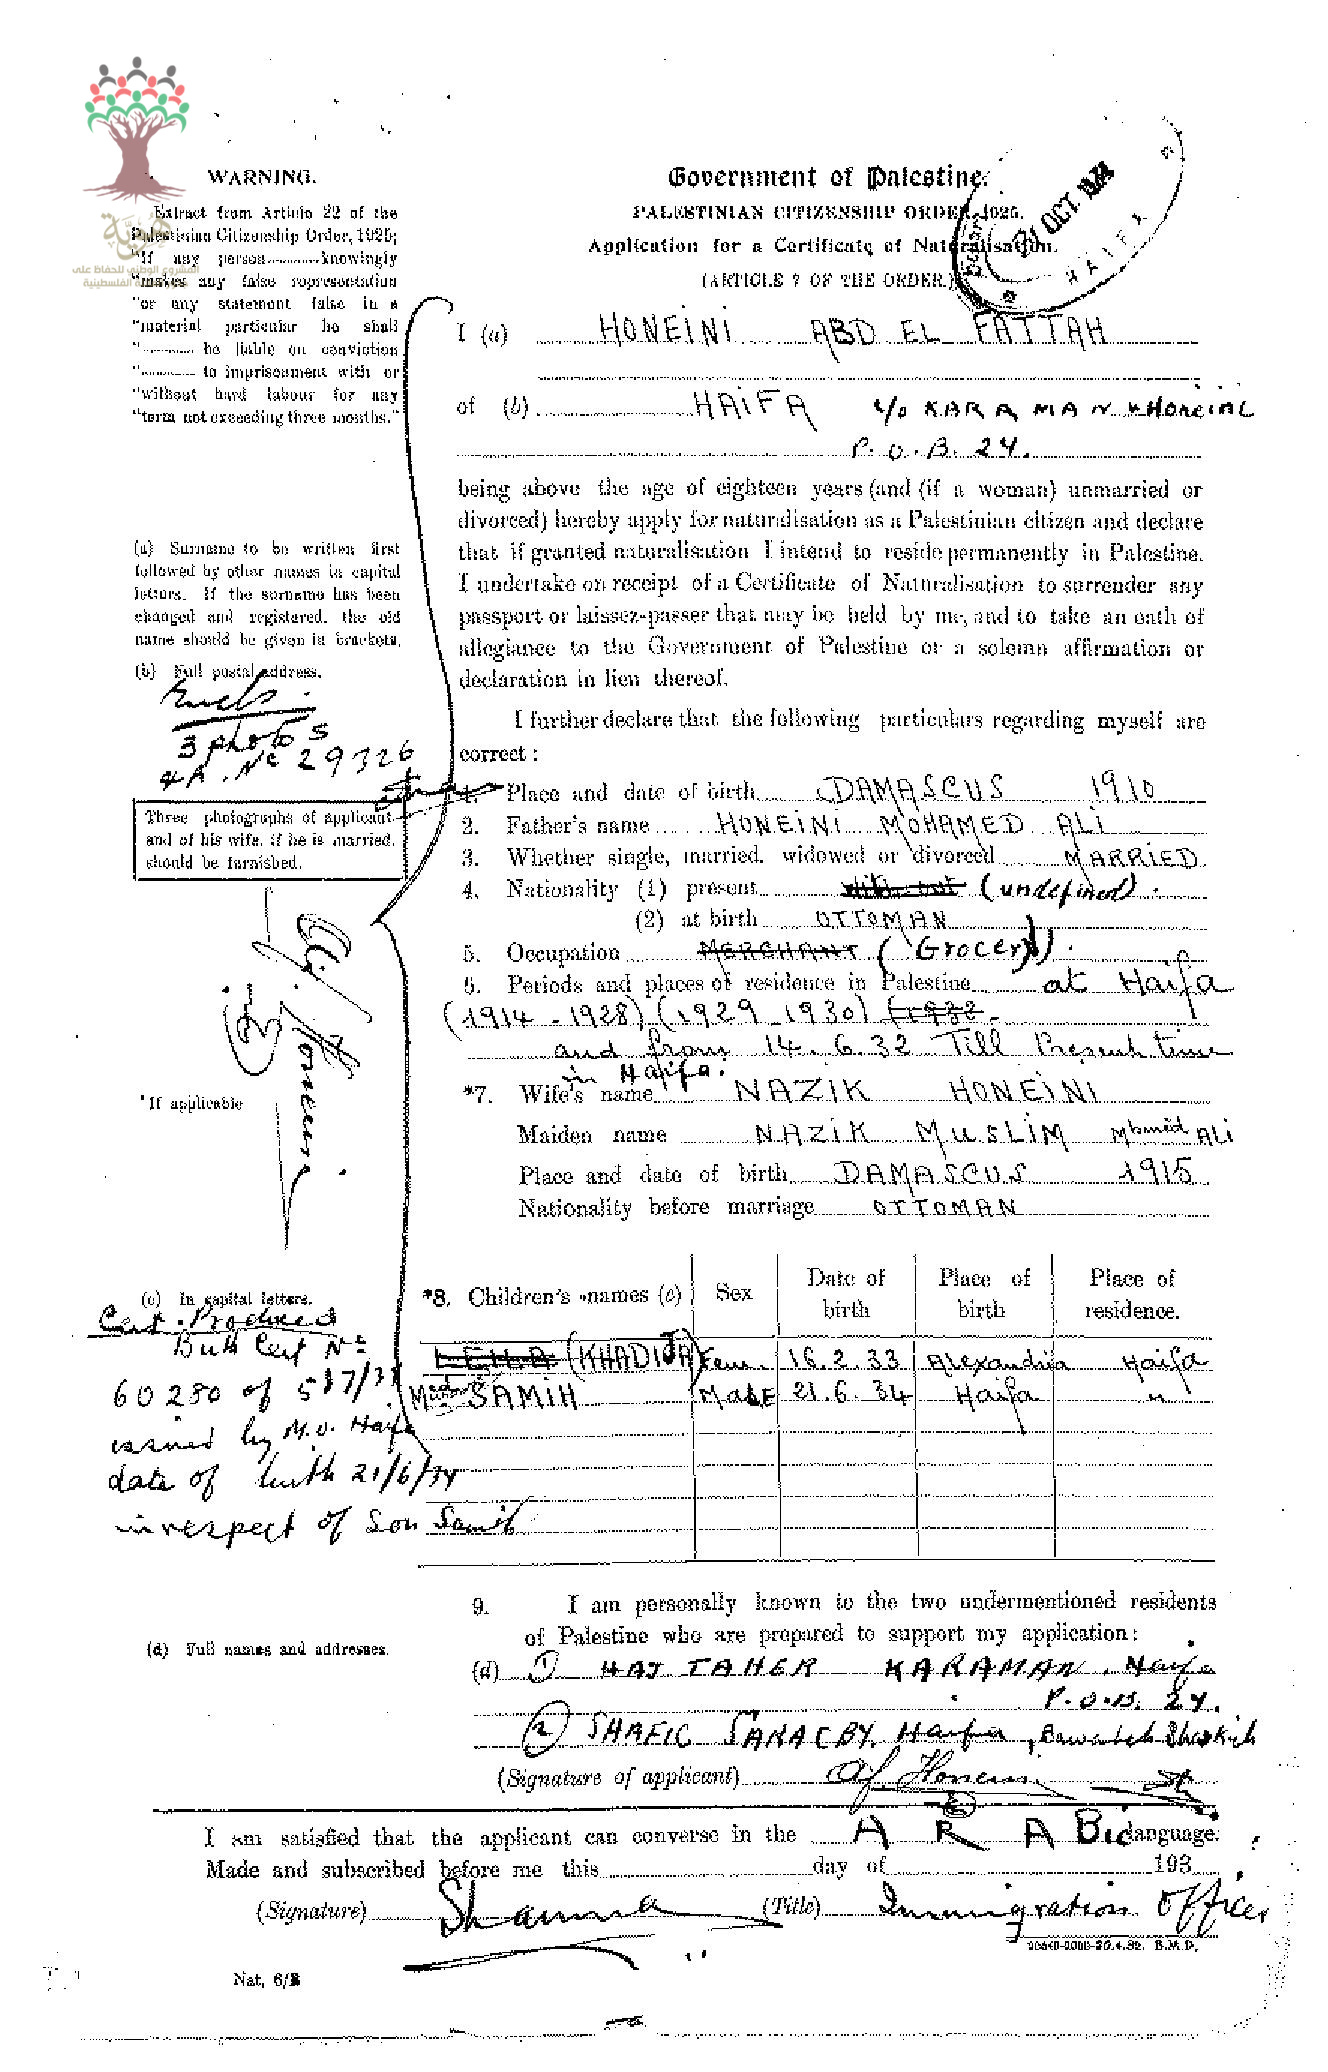 هوية
المشروع الوطني للحفاظ على
الفلسطينية
WARNING.
Extract from Article 22 of the
Palestinian Citizenship Order, 1925;
"If any person..........knowingly
"makes any false representation
"or any statement false in a
"material particular he shall
".......... be liable on conviction
".......... to imprisonment with or
"without hard labour for any
"term not exceeding three months."
Government of Palestine.
PALESTINIAN CITIZENSHIP ORDER, 1925.
Application for a Certificate of Naturalisation.
(ARTICLE 7 OF THE ORDER.)
OCT. 1934
HAIFA
I (a) HONEINI ABD EL FATTAH
of (b) HAIFA c/o KARAMAN & HONEINI
P.O.B. 24.
being above the age of eighteen years (and (if a woman) unmarried or
divorced) hereby apply for naturalisation as a Palestinian citizen and declare
that if granted naturalisation I intend to reside permanently in Palestine.
I undertake on receipt of a Certificate of Naturalisation to surrender any
passport or laissez-passer that may be held by me, and to take an oath of
allegiance to the Government of Palestine or a solemn affirmation or
declaration in lieu thereof.
I further declare that the following particulars regarding myself are
correct:
(a) Surname to be written first
followed by other names in capital
letters. If the surname has been
changed and registered, the old
name should be given in brackets.
(b) Full postal address.
3 photos
No 29326
Three photographs of applicant
and of his wife, if he is married,
should be furnished.
1. Place and date of birth DAMASCUS 1910
2. Father's name HONEINI MOHAMED ALI
3. Whether single, married, widowed or divorced MARRIED
4. Nationality (1) present (undefined).
(2) at birth OTTOMAN
5. Occupation MERCHANT (Grocery).
6. Periods and places of residence in Palestine at Haifa
(1914 - 1928) (1929 - 1930) (1932 -
and from 14.6.32 Till Present time
in Haifa.
*If applicable
*7. Wife's name NAZIK HONEINI
Maiden name NAZIK MUSLIM Mhmed ALI
Place and date of birth DAMASCUS 1915
Nationality before marriage OTTOMAN
(c) In capital letters.
Cert. Produced
Birth Cert No
60280 of
issued by M.O. Haifa
date of birth 21/6/34
in respect of Son Samih
*8. Children's names (c) Sex Date of birth Place of birth Place of residence.
LEILA (KHADIJA) Fem. 16.2.33 Alexandria Haifa
SAMIH MALE 21.6.34 Haifa "
9. I am personally known to the two undermentioned residents
of Palestine who are prepared to support my application:
(d) Full names and addresses.
(d) 1) HAJ TAHER KARAMAN. Haifa
P.O.B. 24.
2) SHAFIC Haifa,
(Signature of applicant) Af. Honeini
I am satisfied that the applicant can converse in the ARABIC language.
Made and subscribed before me this day of 193
(Signature) (Title) Immigration Officer
Nat. 6/